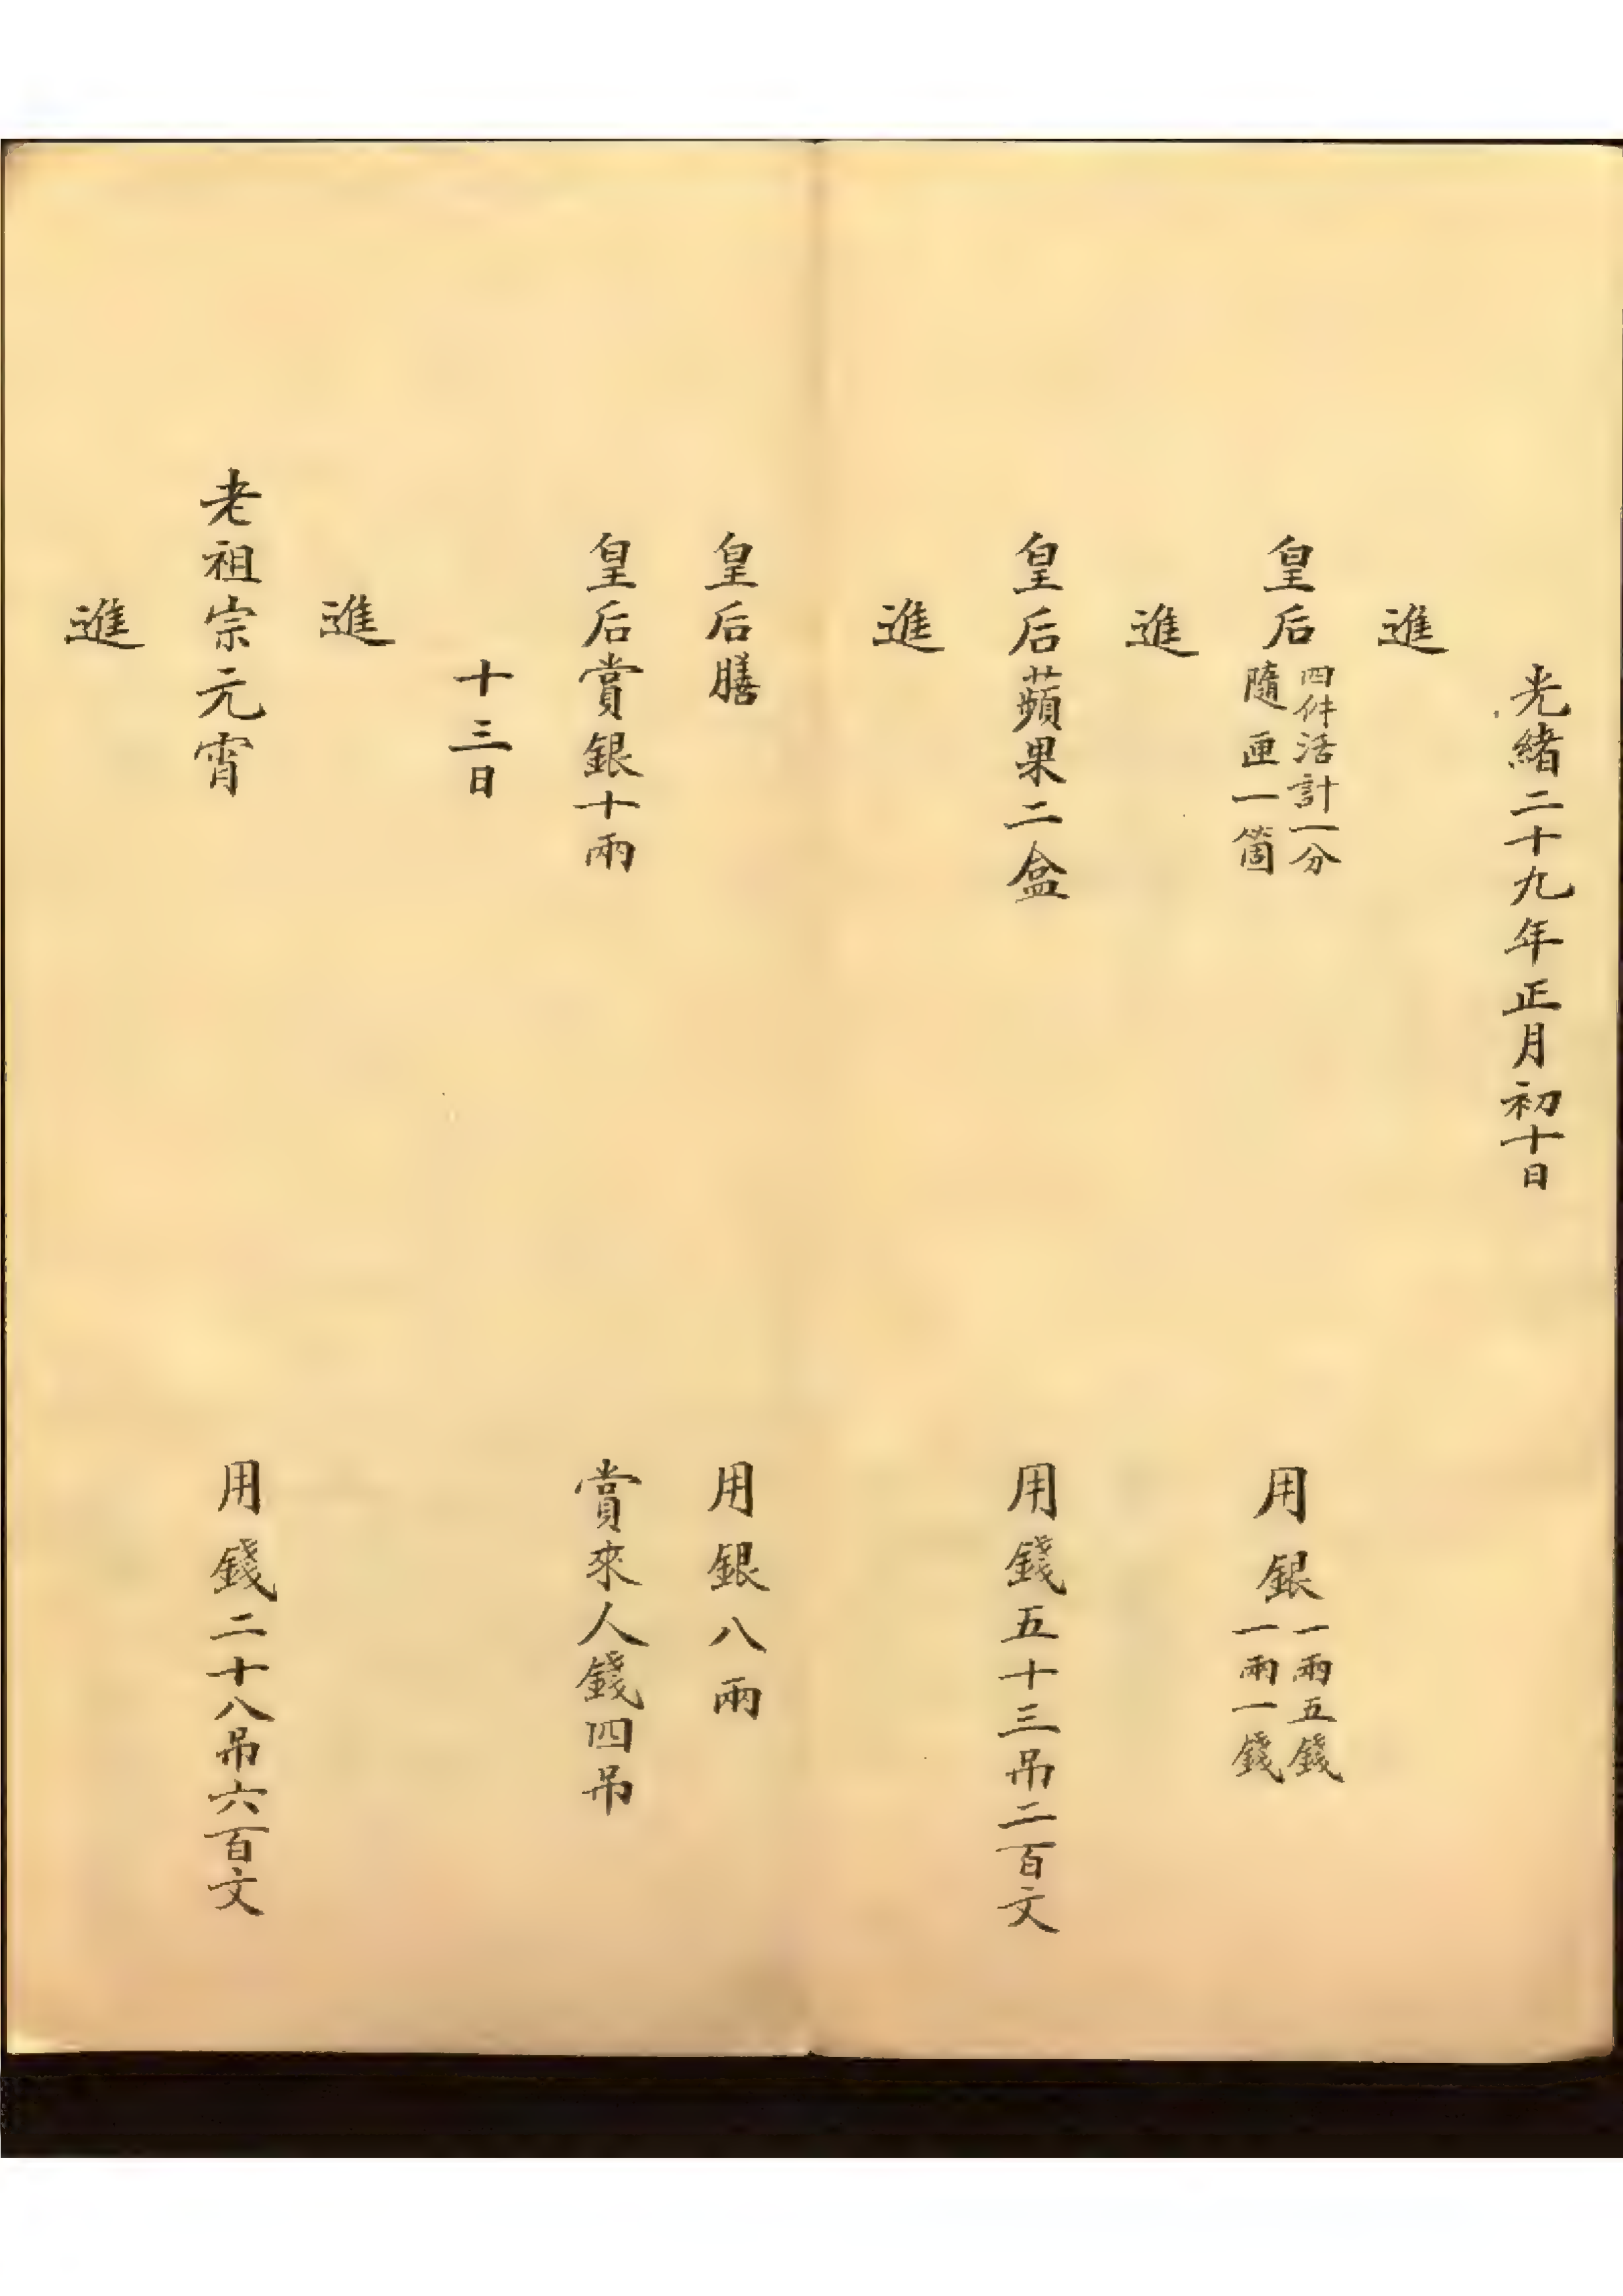 光緒二十九年正月初十日
進
皇后
四件活計一分
隨匣一箇
用銀
一兩五錢
一兩一錢
進
皇后蘋果二盒
用錢五十三吊二百文
進
皇后膳
用銀八兩
皇后賞銀十兩
賞來人錢四吊
十三日
進
老祖宗元宵
用錢二十八吊六百文
進